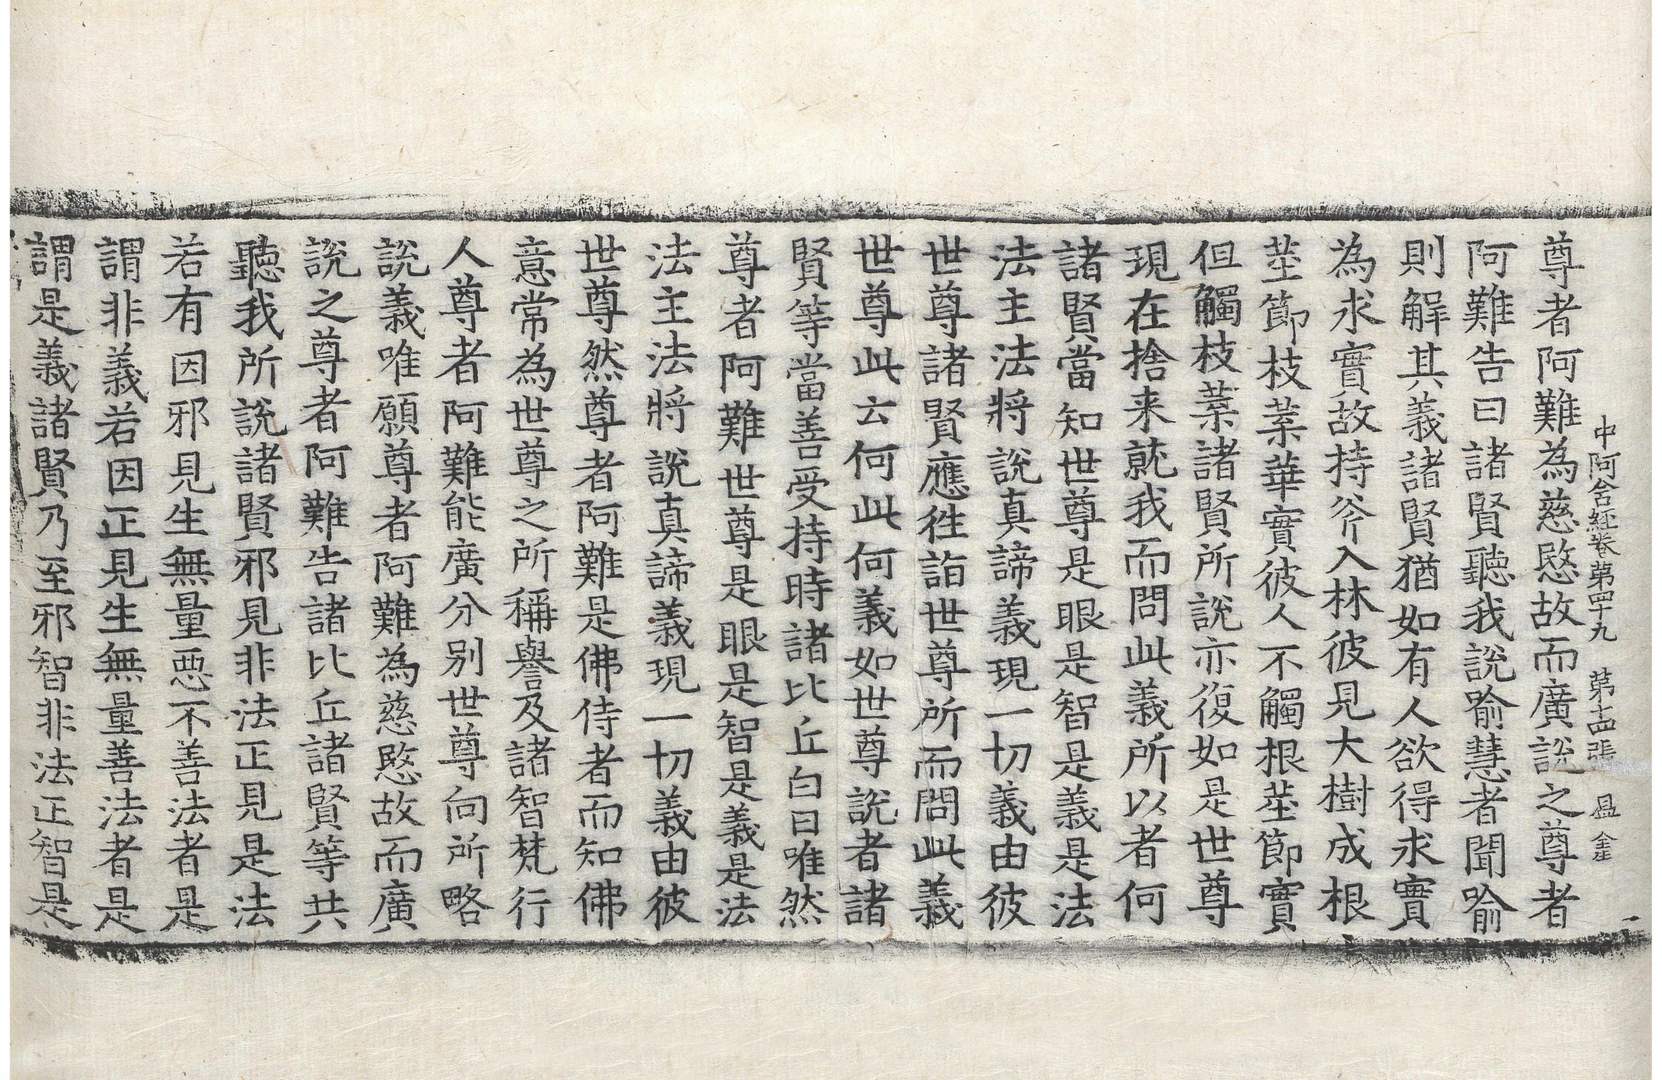 中阿含經卷第四十九　第十四張　盈　金
尊者阿難為慈愍故而廣說之尊者
阿難告曰諸賢聽我說喻慧者聞喻
則解其義諸賢猶如有人欲得求實
為求實故持斧入林彼見大樹成根
莖節枝葉華實彼人不觸根莖節實
但觸枝葉諸賢所說亦復如是世尊
現在捨来就我而問此義所以者何
諸賢當知世尊是眼是智是義是法
法主法將說真諦義現一切義由彼
世尊諸賢應往詣世尊所而問此義
世尊此云何此何義如世尊說者諸
賢等當善受持時諸比丘白曰唯然
尊者阿難世尊是眼是智是義是法
法主法將說真諦義現一切義由彼
世尊然尊者阿難是佛侍者而知佛
意常為世尊之所稱譽及諸智梵行
人尊者阿難能廣分別世尊向所略
說義唯願尊者阿難為慈愍故而廣
說之尊者阿難告諸比丘諸賢等共
聽我所說諸賢邪見非法正見是法
若有因邪見生無量惡不善法者是
謂非義若因正見生無量善法者是
謂是義諸賢乃至邪智非法正智是